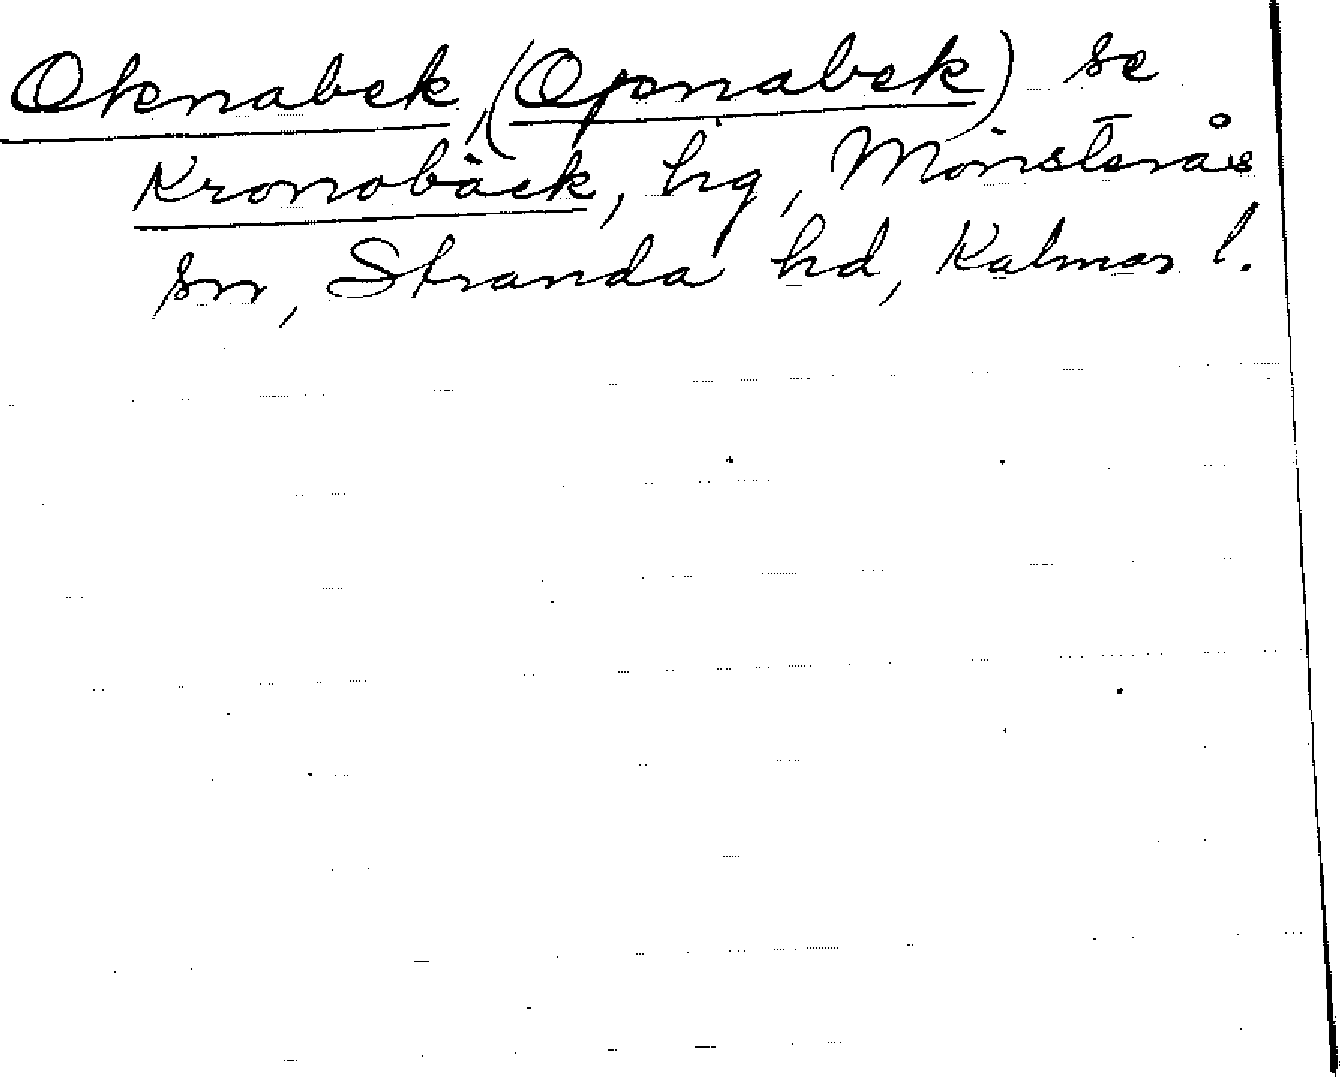 Oknabek, (Opnabek) se
Kronobäck, hg, Mönsterås
sn, Stranda hd, Kalmar l.